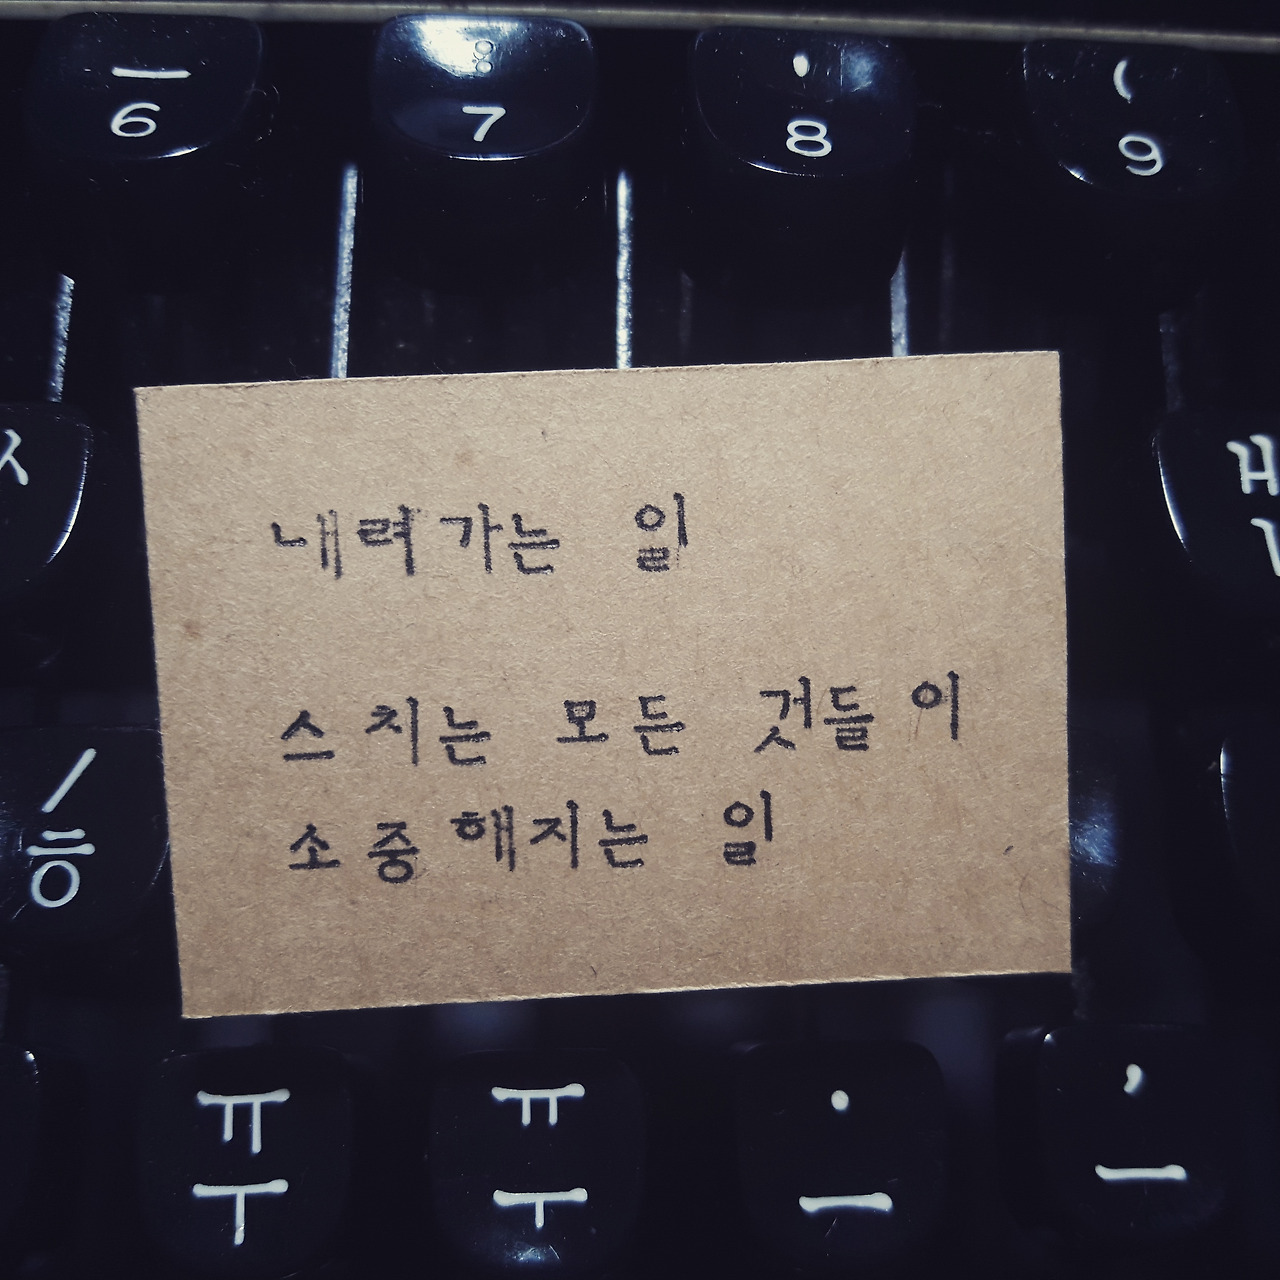 _
6
7
'
8
(
9
ㅅ
ㅐ
내려가는 일
스치는 모든 것들이
소중해지는 일
/
ㅎ
ㅠ
ㅜ
ㅠ
ㅜ
.
ㅡ
,
ㅡ